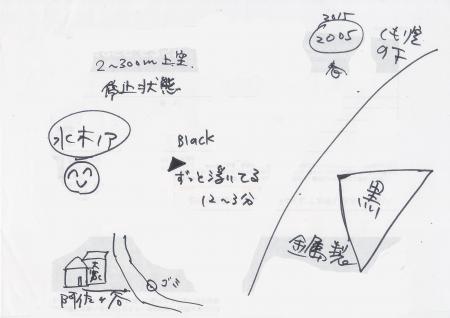 2015
2005
春
くもり空
の下
2〜300m上空
停止状態
水木ノア
Black
ずっと浮いてる
12〜3分
黒い
金属製
ゴミ
阿佐ヶ谷